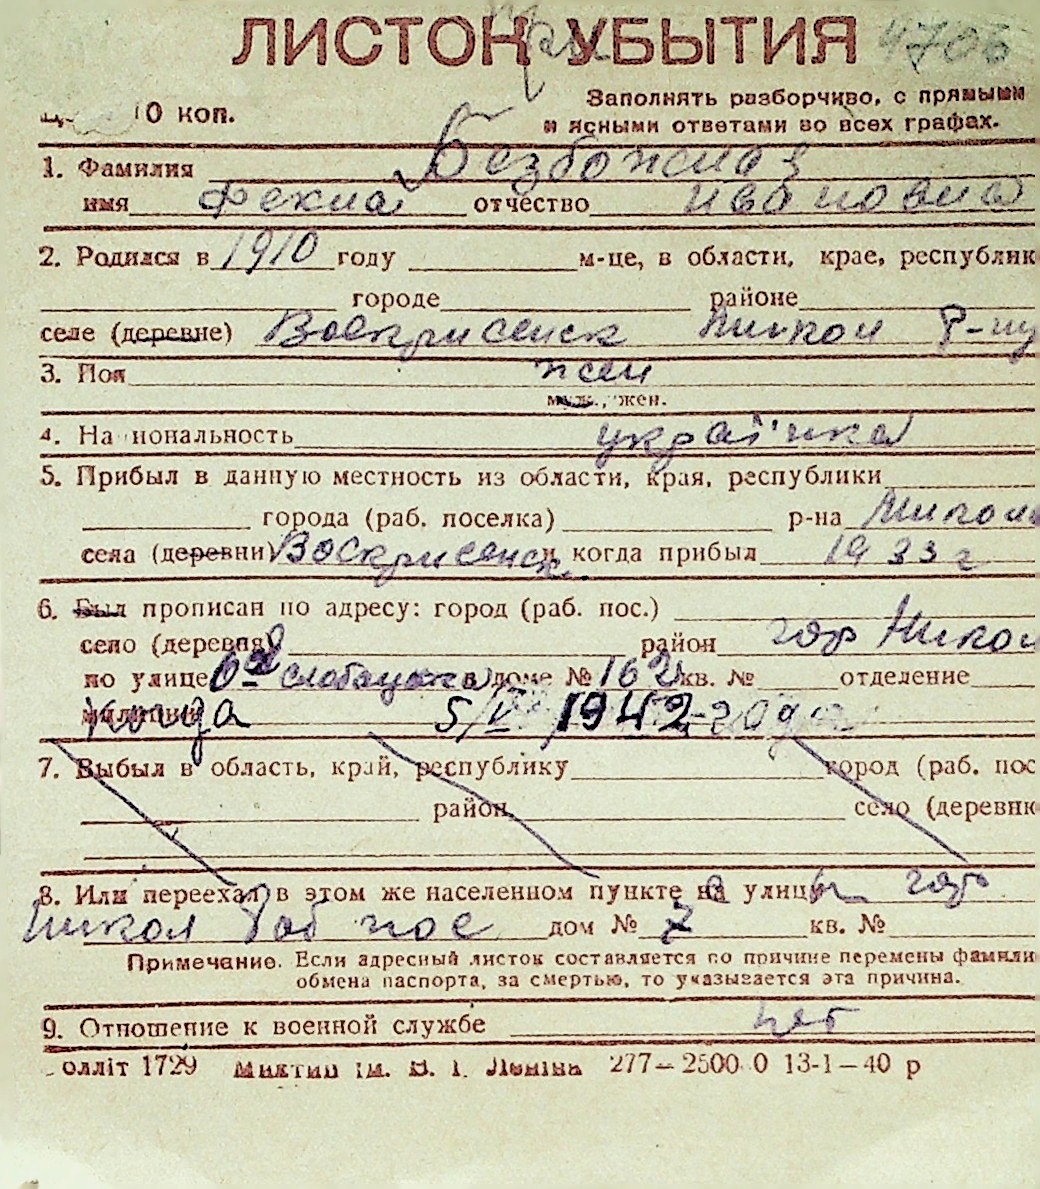 ЛИСТОК УБЫТИЯ 4706
При
10 коп.
Заполнять разборчиво, с прямыми
и ясными ответами во всех графах.
1. Фамилия Безбожная
имя Фекла отчество Ивановна
2. Родился в 1910 году м-це, в области, крае, республик
городе районе
селе (деревне) Воскрисенск Никол Р-ну
3. Пол жен
муж., жен.
4. Национальность украї'нка
5. Прибыл в данную местность из области, края, республики
города (раб. поселка) р-на Никол
села (деревни) Воскрисенск и когда прибыл 1933 г
6. Был прописан по адресу: город (раб. пос.)
село (деревня) район гор Никол
по улице 6ая слободская в доме № 162 кв. № отделение
милиции когда 5/V 1942 года
7. Выбыл в область, край, республику город (раб. пос
район село (деревню
8. Или переехал в этом же населенном пункте на улицы гор
Никол Раб пос дом № 7 кв. №
Примечание. Если адресный листок составляется по причине перемены фамили
обмена паспорта, за смертью, то указывается эта причина.
9. Отношение к военной службе нет
олліт 1729 ім. В. І. Леніна 277—2500 0 13-1—40 р